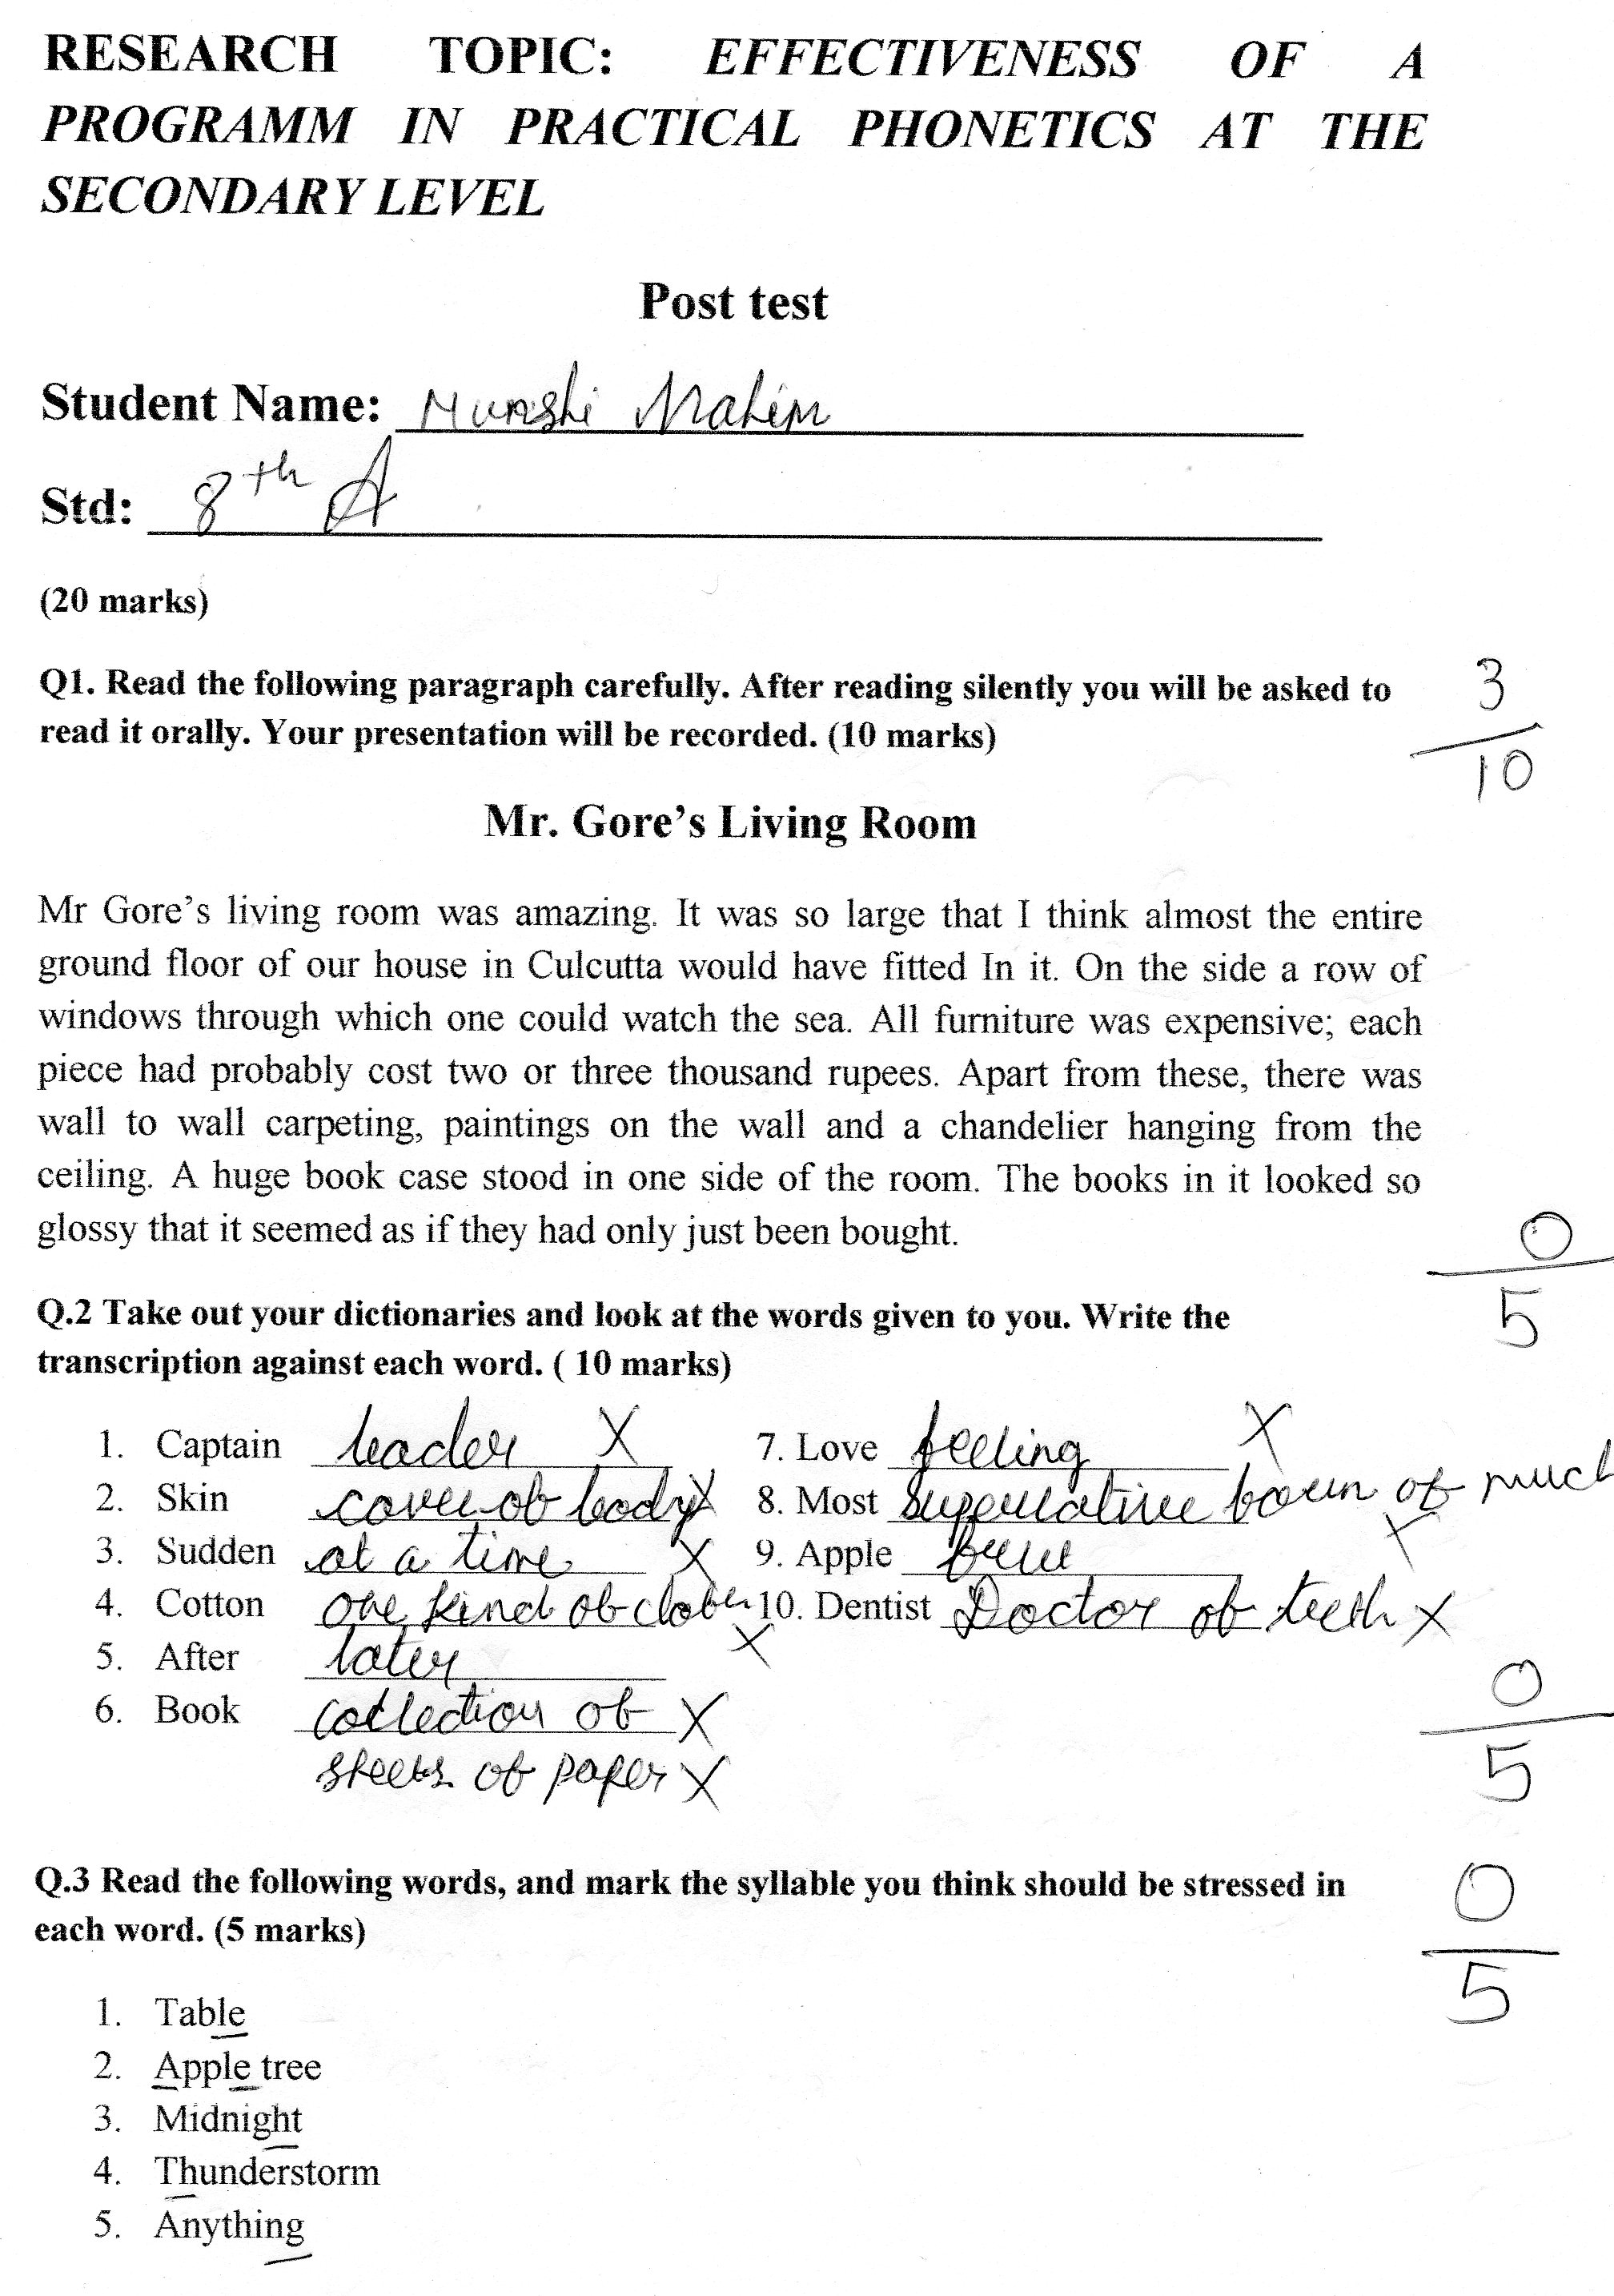 RESEARCH TOPIC: EFFECTIVENESS OF A
PROGRAMM IN PRACTICAL PHONETICS AT THE
SECONDARY LEVEL
Post test
Student Name: Munshi Mahim
Std: 8th A
(20 marks)
Q1. Read the following paragraph carefully. After reading silently you will be asked to
read it orally. Your presentation will be recorded. (10 marks)
3
10
Mr. Gore's Living Room
Mr Gore's living room was amazing. It was so large that I think almost the entire
ground floor of our house in Culcutta would have fitted In it. On the side a row of
windows through which one could watch the sea. All furniture was expensive; each
piece had probably cost two or three thousand rupees. Apart from these, there was
wall to wall carpeting, paintings on the wall and a chandelier hanging from the
ceiling. A huge book case stood in one side of the room. The books in it looked so
glossy that it seemed as if they had only just been bought.
0
5
Q.2 Take out your dictionaries and look at the words given to you. Write the
transcription against each word. ( 10 marks)
1. Captain leader X 7. Love feeling X
2. Skin cover of body X 8. Most superlative of much X
3. Sudden at a time X 9. Apple
4. Cotton one kind of X 10. Dentist Doctor of teeth X
5. After later
6. Book collection of X
sheets of paper X
0
5
Q.3 Read the following words, and mark the syllable you think should be stressed in
each word. (5 marks)
0
5
1. Table
2. Apple tree
3. Midnight
4. Thunderstorm
5. Anything